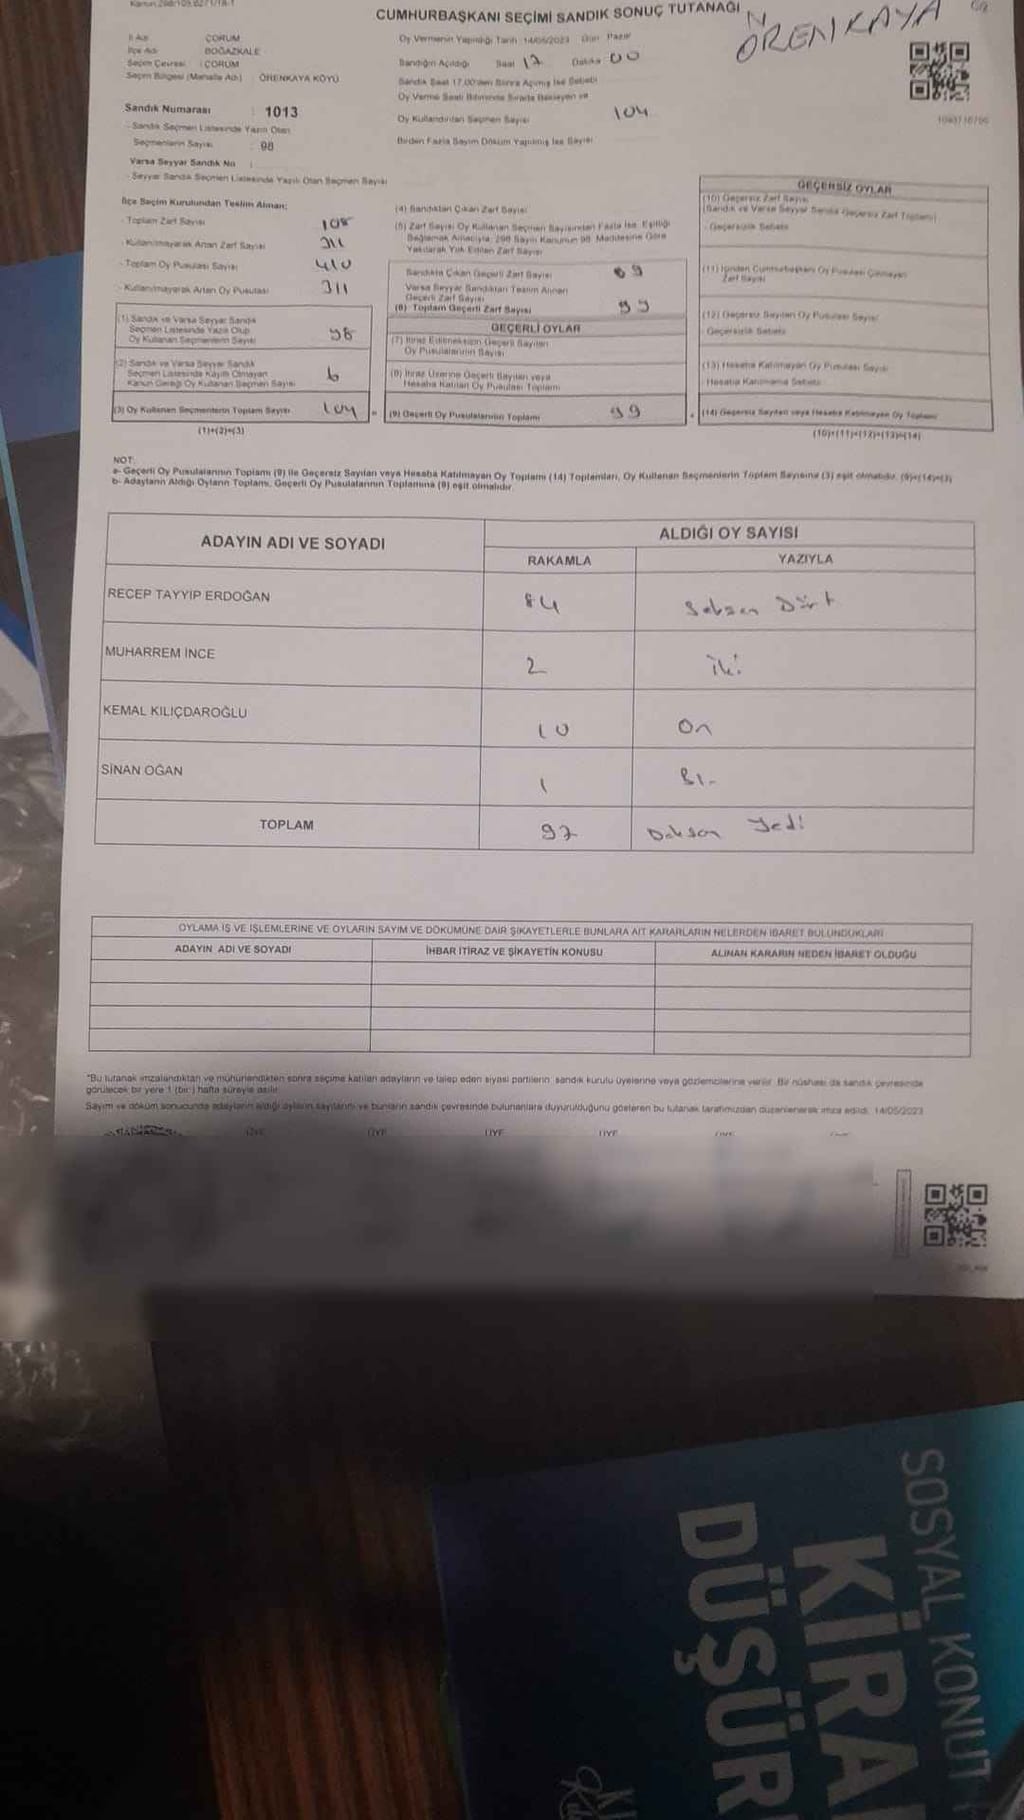 CUMHURBAŞKANI SEÇİMİ SANDIK SONUÇ TUTANAĞI
ÖRENKAYA
İl Adı ÇORUM
İlçe Adı BOĞAZKALE
Seçim Çevresi : ÇORUM
Seçim Bölgesi (Mahalle Adı) : ÖRENKAYA KÖYÜ
Oy Vermenin Yapıldığı Tarih 14/05/2023 Gün Pazar
Sandığın Açıldığı Saat 17 Dakika 00
Sandık Saat 17.00'den Sonra Açılmış İse Sebebi
Oy Verme Saati Bitiminde Sırada Bekleyen ve
Oy Kullandırılan Seçmen Sayısı 104
Birden Fazla Sayım Döküm Yapılmış İse Sayısı
Sandık Numarası : 1013
- Sandık Seçmen Listesinde Yazılı Olan
Seçmenlerin Sayısı : 98
Varsa Seyyar Sandık No :
- Seyyar Sandık Seçmen Listesinde Yazılı Olan Seçmen Sayısı
İlçe Seçim Kurulundan Teslim Alınan:
- Toplam Zarf Sayısı
- Kullanılmayarak Artan Zarf Sayısı 311
- Toplam Oy Pusulası Sayısı 410
- Kullanılmayarak Artan Oy Pusulası 311
(1) Sandık ve Varsa Seyyar Sandık
Seçmen Listesinde Yazılı Olup
Oy Kullanan Seçmenlerin Sayısı 98
(2) Sandık ve Varsa Seyyar Sandık
Seçmen Listesinde Kayıtlı Olmayan
Kanun Gereği Oy Kullanan Seçmen Sayısı 6
(3) Oy Kullanan Seçmenlerin Toplam Sayısı 104
(1)+(2)=(3)
(4) Sandıktan Çıkan Zarf Sayısı
(5) Zarf Sayısı Oy Kullanan Seçmen Sayısından Fazla İse, Eşitliği
Sağlamak Amacıyla, 298 Sayılı Kanunun 98. Maddesine Göre
Yakılarak Yok Edilen Zarf Sayısı
Sandıkta Çıkan Geçerli Zarf Sayısı
Varsa Seyyar Sandıktan Teslim Alınan
Geçerli Zarf Sayısı
(6) Toplam Geçerli Zarf Sayısı 99
GEÇERLİ OYLAR
(7) İtiraz Edilmeksizin Geçerli Sayılan
Oy Pusulalarının Sayısı
(8) İtiraz Üzerine Geçerli Sayılan veya
Hesaba Katılan Oy Pusulası Toplamı
(9) Geçerli Oy Pusulalarının Toplamı 99
GEÇERSİZ OYLAR
(10) Geçersiz Zarf Sayısı
(Sandık ve Varsa Seyyar Sandık Geçersiz Zarf Toplamı)
- Geçersizlik Sebebi
(11) İçinden Cumhurbaşkanı Oy Pusulası Çıkmayan
Zarf Sayısı
(12) Geçersiz Sayılan Oy Pusulası Sayısı
- Geçersizlik Sebebi
(13) Hesaba Katılmayan Oy Pusulası Sayısı
- Hesaba Katılmama Sebebi
(14) Geçersiz Sayılan veya Hesaba Katılmayan Oy Toplamı
(10)+(11)+(12)+(13)=(14)
NOT:
a- Geçerli Oy Pusulalarının Toplamı (9) ile Geçersiz Sayılan veya Hesaba Katılmayan Oy Toplamı (14) Toplamları, Oy Kullanan Seçmenlerin Toplam Sayısına (3) eşit olmalıdır. (9)+(14)=(3)
b- Adayların Aldığı Oyların Toplamı, Geçerli Oy Pusulalarının Toplamına (9) eşit olmalıdır.
ADAYIN ADI VE SOYADI ALDIĞI OY SAYISI
RAKAMLA YAZIYLA
RECEP TAYYİP ERDOĞAN 84 Seksen Dört
MUHARREM İNCE 2 iki
KEMAL KILIÇDAROĞLU 10 On
SİNAN OĞAN 1 Bir
TOPLAM 97 Doksan Yedi
OYLAMA İŞ VE İŞLEMLERİNE VE OYLARIN SAYIM VE DÖKÜMÜNE DAİR ŞİKAYETLERLE BUNLARA AİT KARARLARIN NELERDEN İBARET BULUNDUKLARI
ADAYIN ADI VE SOYADI İHBAR İTİRAZ VE ŞİKAYETİN KONUSU ALINAN KARARIN NEDEN İBARET OLDUĞU
*Bu tutanak imzalandıktan ve mühürlendikten sonra seçime katılan adayların ve talep eden siyasi partilerin sandık kurulu üyelerine veya gözlemcilerine verilir. Bir nüshası da sandık çevresinde
görülecek bir yere 1 (bir) hafta süreyle asılır.
Sayım ve döküm sonucunda adayların aldığı oyların sayılarını ve bunların sandık çevresinde bulunanlara duyurulduğunu gösteren bu tutanak tarafımızdan düzenlenerek imza edildi. 14/05/2023
ÜYE ÜYE ÜYE ÜYE ÜYE
SOSYAL KONUT
KİRA
DÜŞÜR